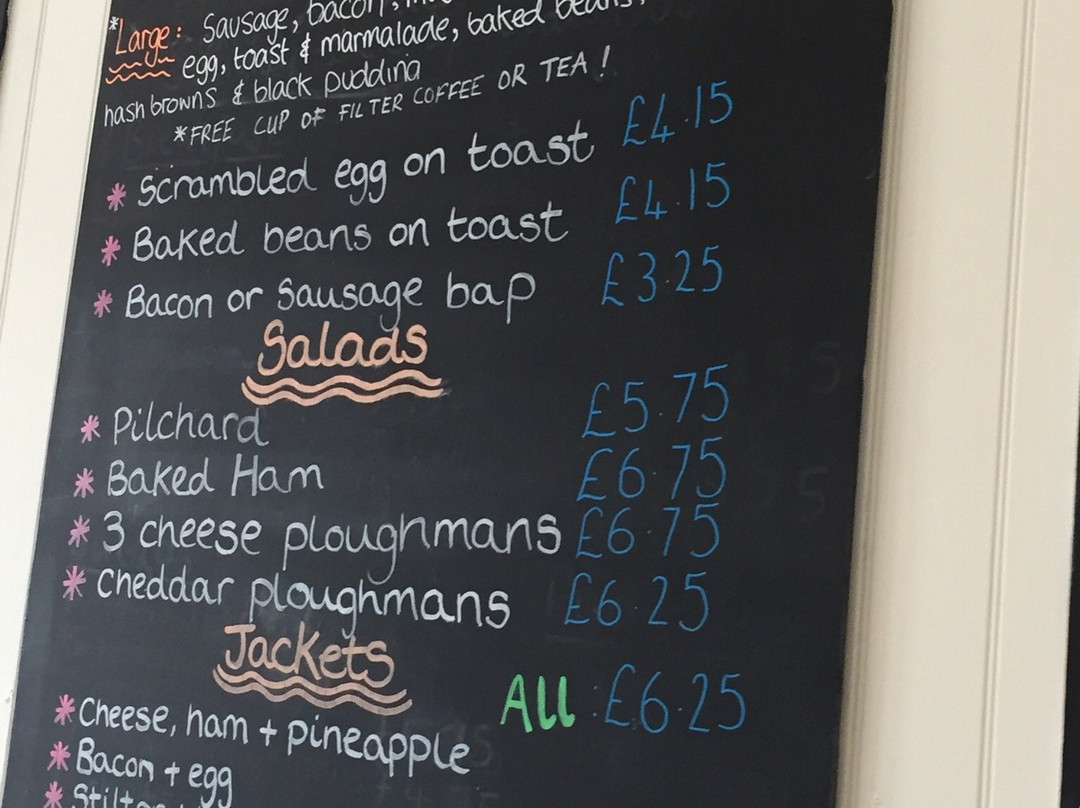 *Large: Sausage, bacon,
egg, toast & marmalade, baked beans,
hash browns & black pudding
*FREE CUP OF FILTER COFFEE OR TEA!
* Scrambled egg on toast £4.15
* Baked beans on toast £4.15
* Bacon or Sausage bap £3.25
Salads
* Pilchard £5.75
* Baked Ham £6.75
* 3 cheese ploughmans £6.75
* cheddar ploughmans £6.25
Jackets
All: £6.25
* Cheese, ham + pineapple
* Bacon + egg
* Stilton